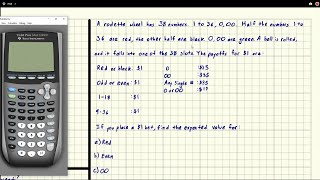 A roulette wheel has 38 numbers. 1 to 36, 0, 00. Half the numbers 1 to
36 are red, the other half are black. 0, 00 are green. A ball is rolled,
and it falls into one of the 38 slots. The payoffs for $1 are:
Red or black: $1 0 : $35
00 : $35
Odd or even: $1 Any Single # : $35
1-18 : $1 0 or 00 : $17
: $1
If you place a $1 bet, find the expected value for:
a) Red
b) Even
c) 00